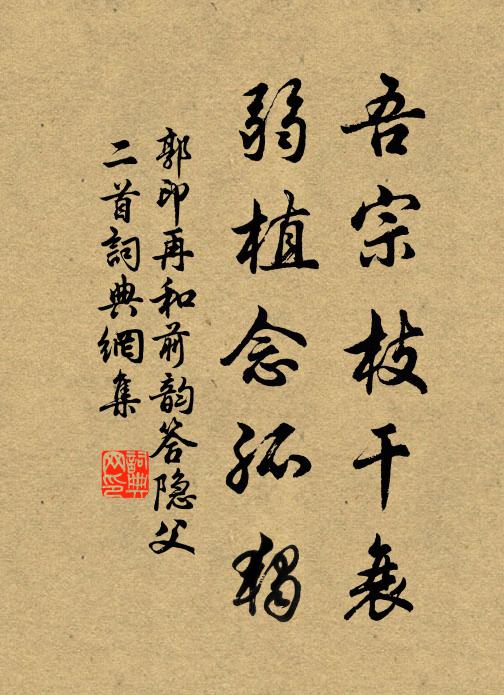 吾宗枝干衰
弱植念孤独
郭印再和前韵答隐父
二首詞典網集
詞典网印